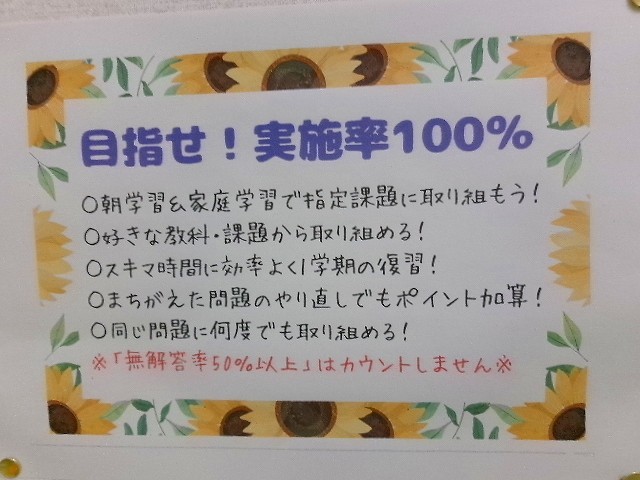 目指せ！実施率100%
○朝学習&家庭学習で指定課題に取り組もう！
○好きな教科・課題から取り組める！
○スキマ時間に効率よく1学期の復習！
○まちがえた問題のやり直しでもポイント加算！
○同じ問題に何度でも取り組める！
※「無解答率50%以上」はカウントしません※